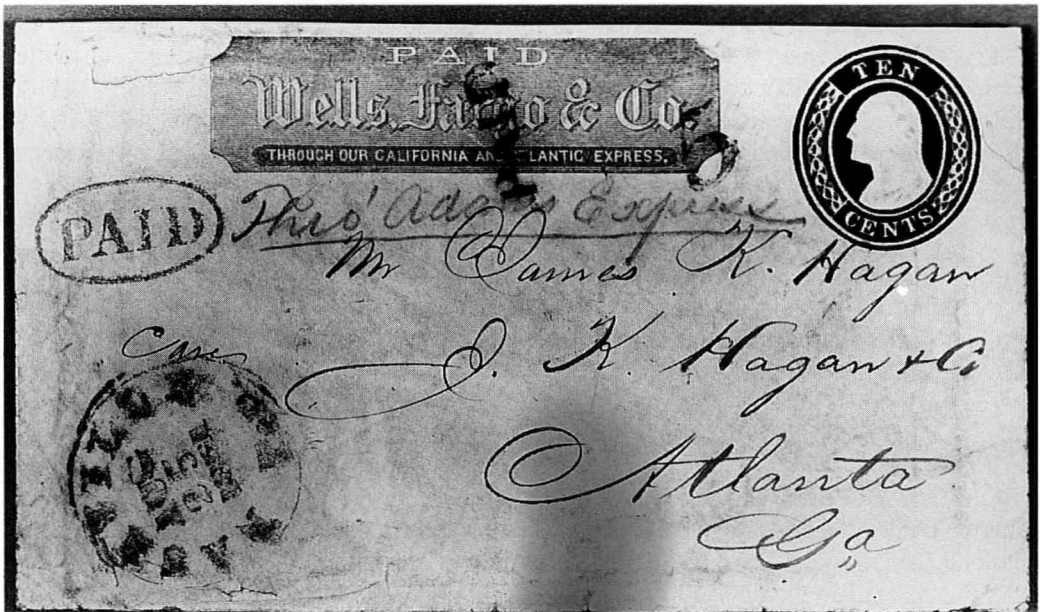 PAID
Wells, Fargo & Co.
THROUGH OUR CALIFORNIA AND ATLANTIC EXPRESS.
TEN
CENTS
PAID
5
PAID
Thro' Adams Express
Mr James K. Hagan
Care J. K. Hagan & Co
Atlanta
Ga